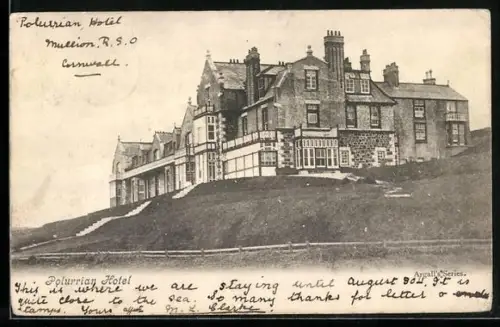 Polurrian Hotel
Mullion. R.S.O
Cornwall.
Polurrian Hotel
Argall's Series.
This is where we are staying until August 30th. It is
quite close to the sea. So many thanks for letter &
stamps. Yours M. L. Clarke.